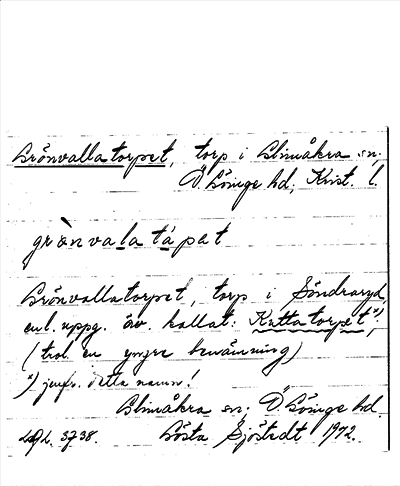 Grönvallatorpet, torp i Glimåkra sn;
Ö. Göinge hd, Krist. l.
grònvalatápat
Grönvallatorpet, torp i Söndraryd,
enl. uppg. äv. kallat: Kattatorpet x);
(trol. en yngre benämning)
x) jemför detta namn!
Glimåkra sn; Ö. Göinge hd.
3738. Gösta Sjöstedt 1972.